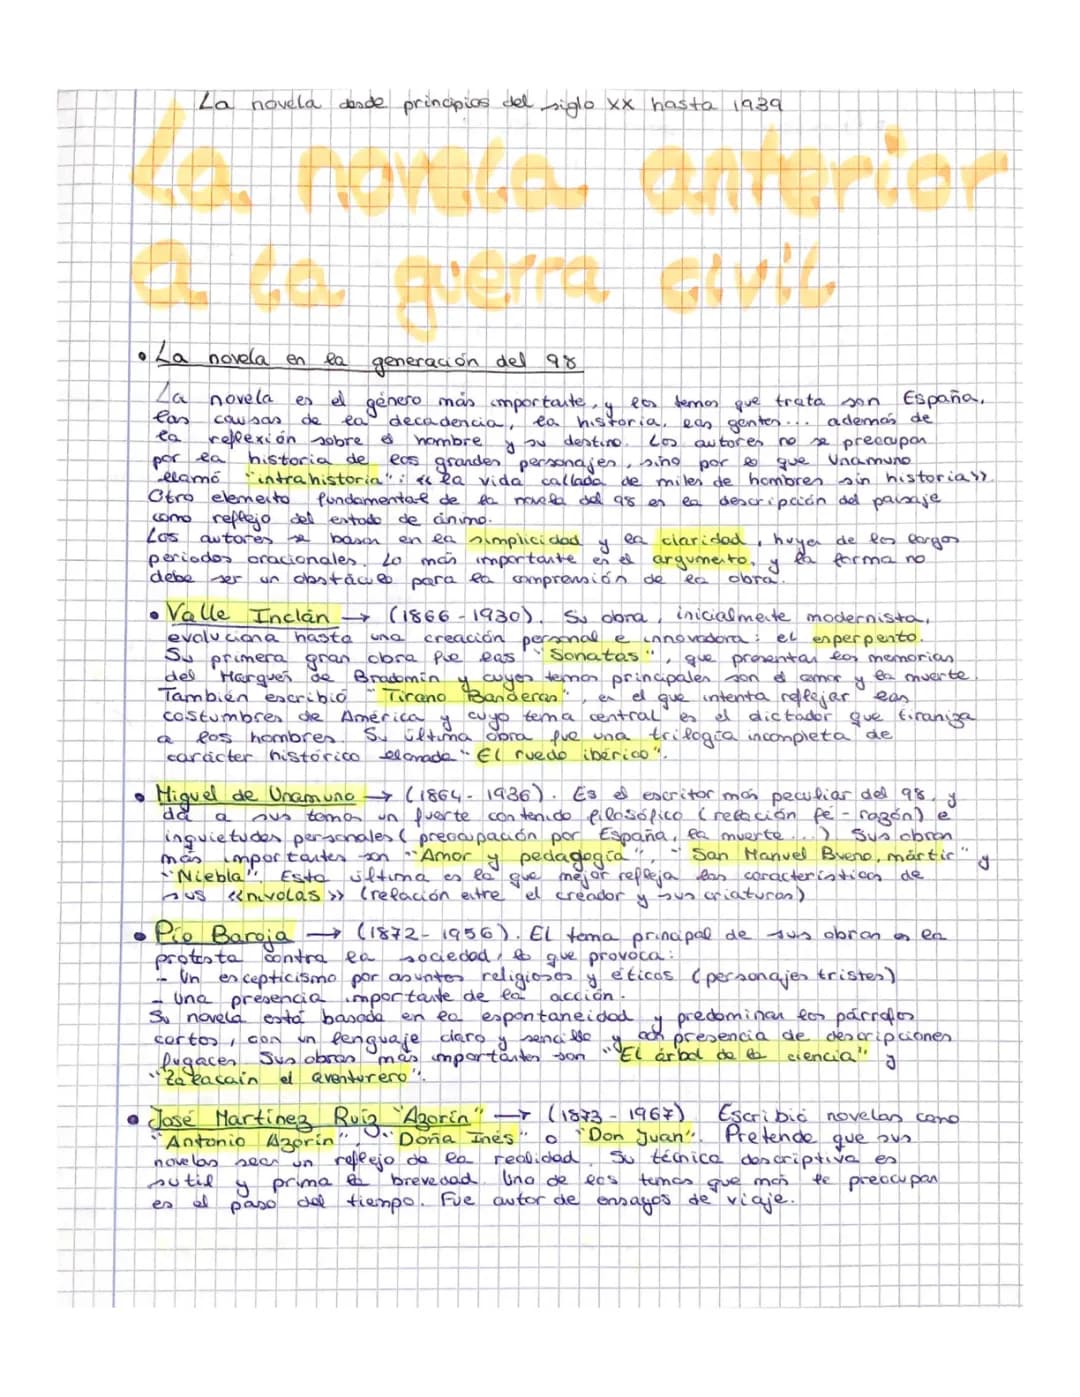 La novela desde principios del siglo XX hasta 1939
La novela anterior
a la guerra civil
• La novela en la generación del 98
La novela es el género más importante, y los temas que trata son España,
las causas de la decadencia, la historia, las gentes... además de
la reflexión sobre el hombre y su destino. Los autores no se preocupan
por la historia de los grandes personajes, sino por lo que Unamuno
llamó "intrahistoria": «la vida callada de miles de hombres sin historia».
Otro elemento fundamental de la novela del 98 es la descripción del paisaje
como reflejo del estado de ánimo.
Los autores se basan en la simplicidad y la claridad, huyen de los largos
periodos oracionales. Lo más importante es el argumento, y la forma no
debe ser un obstáculo para la comprensión de la obra.
• Valle Inclán → (1866-1930). Su obra, inicialmente modernista,
evoluciona hasta una creación personal e innovadora: el esperpento.
Su primera gran obra fue las "Sonatas", que presentan las memorias
del Marqués de Bradomín y cuyos temas principales son el amor y la muerte.
También escribió "Tirano Banderas", en el que intenta reflejar las
costumbres de América y cuyo tema central es el dictador que tiraniza
a los hombres. Su última obra fue una trilogía incompleta de
carácter histórico llamada "El ruedo ibérico".
• Miguel de Unamuno → (1864-1936). Es el escritor más peculiar del 98, y
da a sus temas un fuerte contenido filosófico (relación fé-razón) e
inquietudes personales (preocupación por España, la muerte...) Sus obras
más importantes son "Amor y pedagogía", "San Manuel Bueno, mártir" y
"Niebla". Esta última es la que mejor refleja las características de
sus «nivolas» (relación entre el creador y sus criaturas)
• Pío Baroja → (1872-1956). El tema principal de sus obras es la
protesta contra la sociedad, lo que provoca:
- Un escepticismo por asuntos religiosos y éticos (personajes tristes)
- Una presencia importante de la acción.
Su novela está basada en la espontaneidad y predominan los párrafos
cortos, con un lenguaje claro y sencillo y con presencia de descripciones
fugaces. Sus obras más importantes son "El árbol de la ciencia" y
"Zalacaín el aventurero".
• José Martínez Ruiz "Azorín" → (1873-1967) Escribió novelas como
"Antonio Azorín", "Doña Inés" o "Don Juan". Pretende que sus
novelas sean un reflejo de la realidad. Su técnica descriptiva es
sutil y prima la brevedad. Uno de los temas que más le preocupan
es el paso del tiempo. Fue autor de ensayos de viaje.